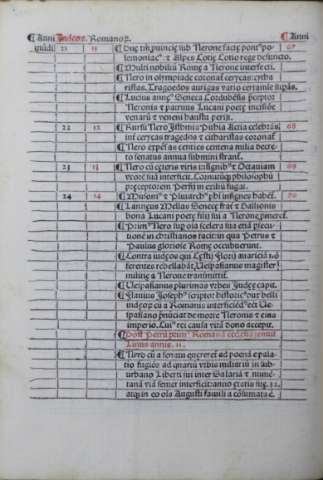 Anni Iudeoꝝ Romanoꝝ Anni
mūdi 21 11 Due ꝓuincię sub Nerone factę pont⁹ po⸗ 67
lemoniac⁹ ⁊ Alpes Cotię Cotio rege defuncto.
Multi nobiliū Romę a Nerone interfecti.
Nero in olympiade coronat̄ ceryces: cytha
ristas. Tragoedos aurigas vario certamīe supās.
Lucius annę⁹ Seneca Cordubēsis
Neronis ⁊ patruus Lucani poetę incisiōe
venarū ⁊ veneni haustu perijt.
22 12 Rursū Nero Isthmia Pithia Actia celebrās 68
inter ceryces tragedos ⁊ citharistas coronat̄
Nero expēsas centies centena milia decre⸗
to senatus annua subministrant̄.
23 13 Nero cū ceteris viris insignib⁹ ⁊ Octauiam 69
vxorē suā interficit. Cornutūq̄ philosophū
pręceptorem Persij in exiliū fugat.
24 14 Musoni⁹ ⁊ Plutarch⁹ phi insignes habēt̄. 70
Lu. Annęus Mellas Senecę frat̄ ⁊ Gallionis
bona Lucani poetę filij sui a Nerone ꝓmeret̄.
Prim⁹ Nero suꝑ oīa scelera sua etiā ꝑsecu
tionē in christianos facit: in qua Petrus ⁊
Paulus gloriose Romę occubuerunt.
Contra iudęos qui Cestij Flori auariciā nō
ferentes rebellabāt, Vespasianus magister
militię a Nerone transmittit̄.
Vespasianus plurimas vrbes Iudęę capit.
Flauius Ioseph⁹ scriptor historic⁹ dux belli
iudęoꝝ cū a Romanis interficiēd⁹ eēt Ves
pasiano ꝓnūciat de morte Neronis ⁊ eius
imperio. Cui⁹ rei causa vitā dono accepit.
Post Petrū prim⁹ Romanā ecclesiā tenuit
Linus annis. 11.
Nero cū a senatu quęreret̄ ad poenā e pala⸗
tio fugiēs ad quartū vrbis miliariū in sub⸗
urbano liberti sui inter Salariā ⁊ numē⸗
tanā viā semet interficit: anno ętatis suę. 32.
atq̄ in eo oīs Augusti familia cōsumata ē.